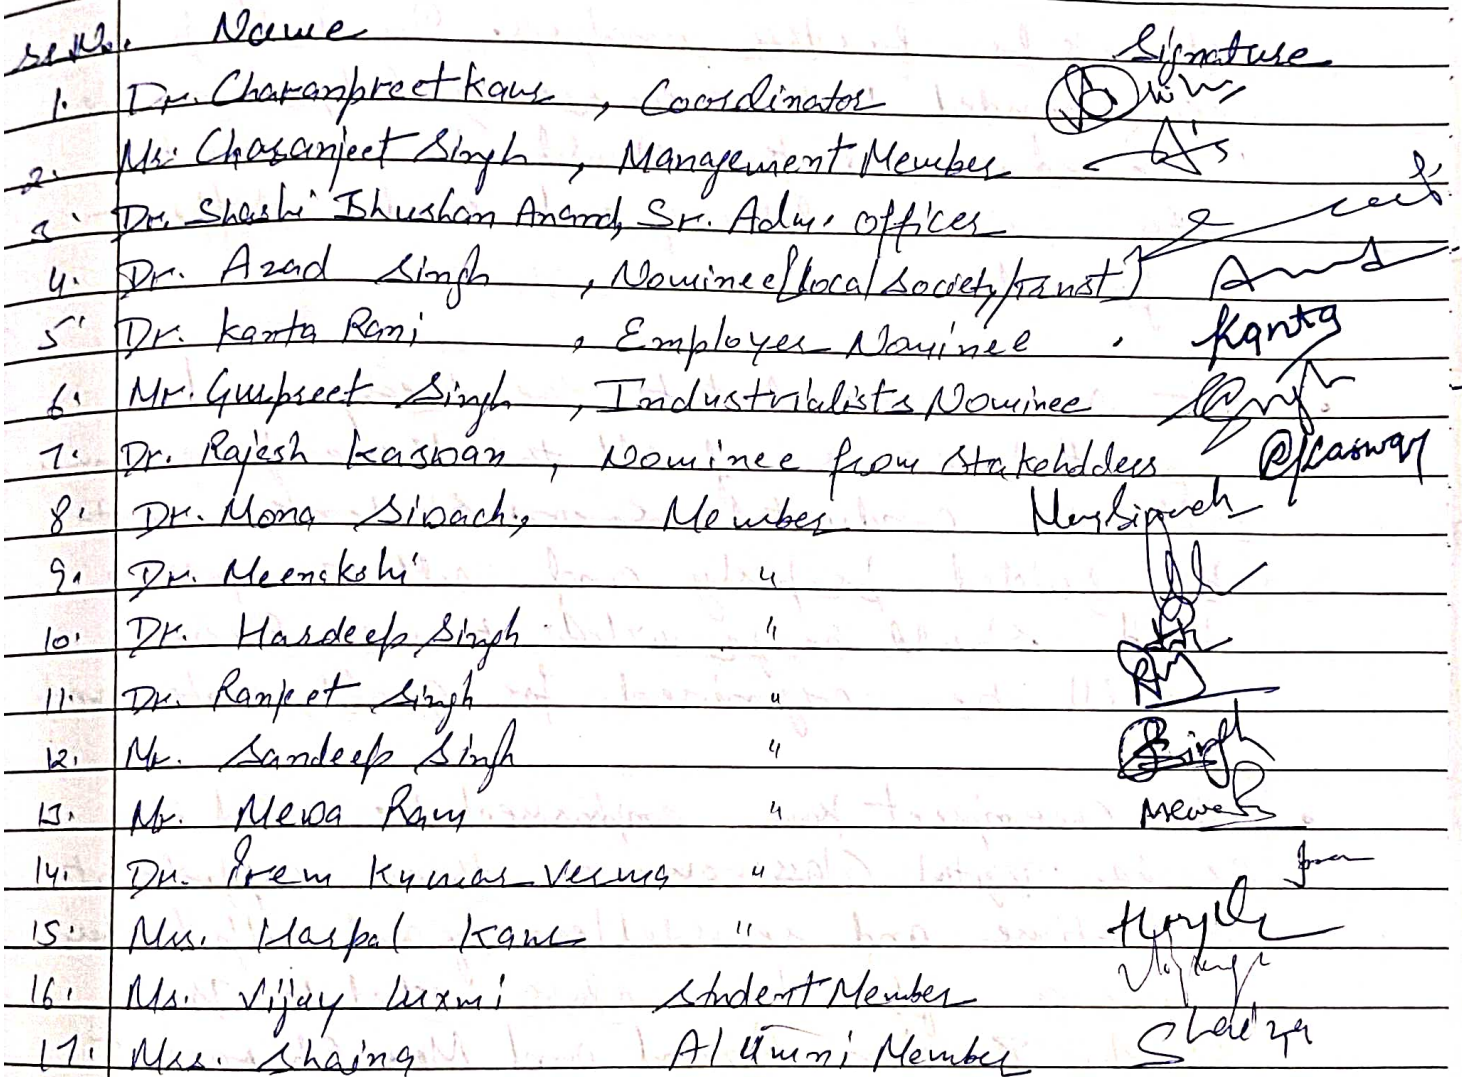 Sr.No. Name Signature
1. Dr. Charanpreet Kaur, Coordinator
2. Mr. Charanjeet Singh, Management Member
3. Dr. Shashi Bhushan Anand, Sr. Adm. Officer
4. Dr. Azad Singh, Nominee [local society/trust]
5. Dr. Kanta Rani, Employer Nominee. Kanta
6. Mr. Gurpreet Singh, Industrialists Nominee
7. Dr. Rajesh Kaswan, Nominee from Stakeholders RjKaswan
8. Dr. Mona Siwach, Member
9. Dr. Meenakshi "
10. Dr. Hardeep Singh "
11. Dr. Ranjeet Singh "
12. Mr. Sandeep Singh " Singh
13. Mr. Mewa Ram "
14. Dr. Prem Kumar Verma "
15. Mrs. Harpal Kaur "
16. Ms. Vijay Luxmi Student Member
17. Mrs. Shaina Alumni Member Shaina